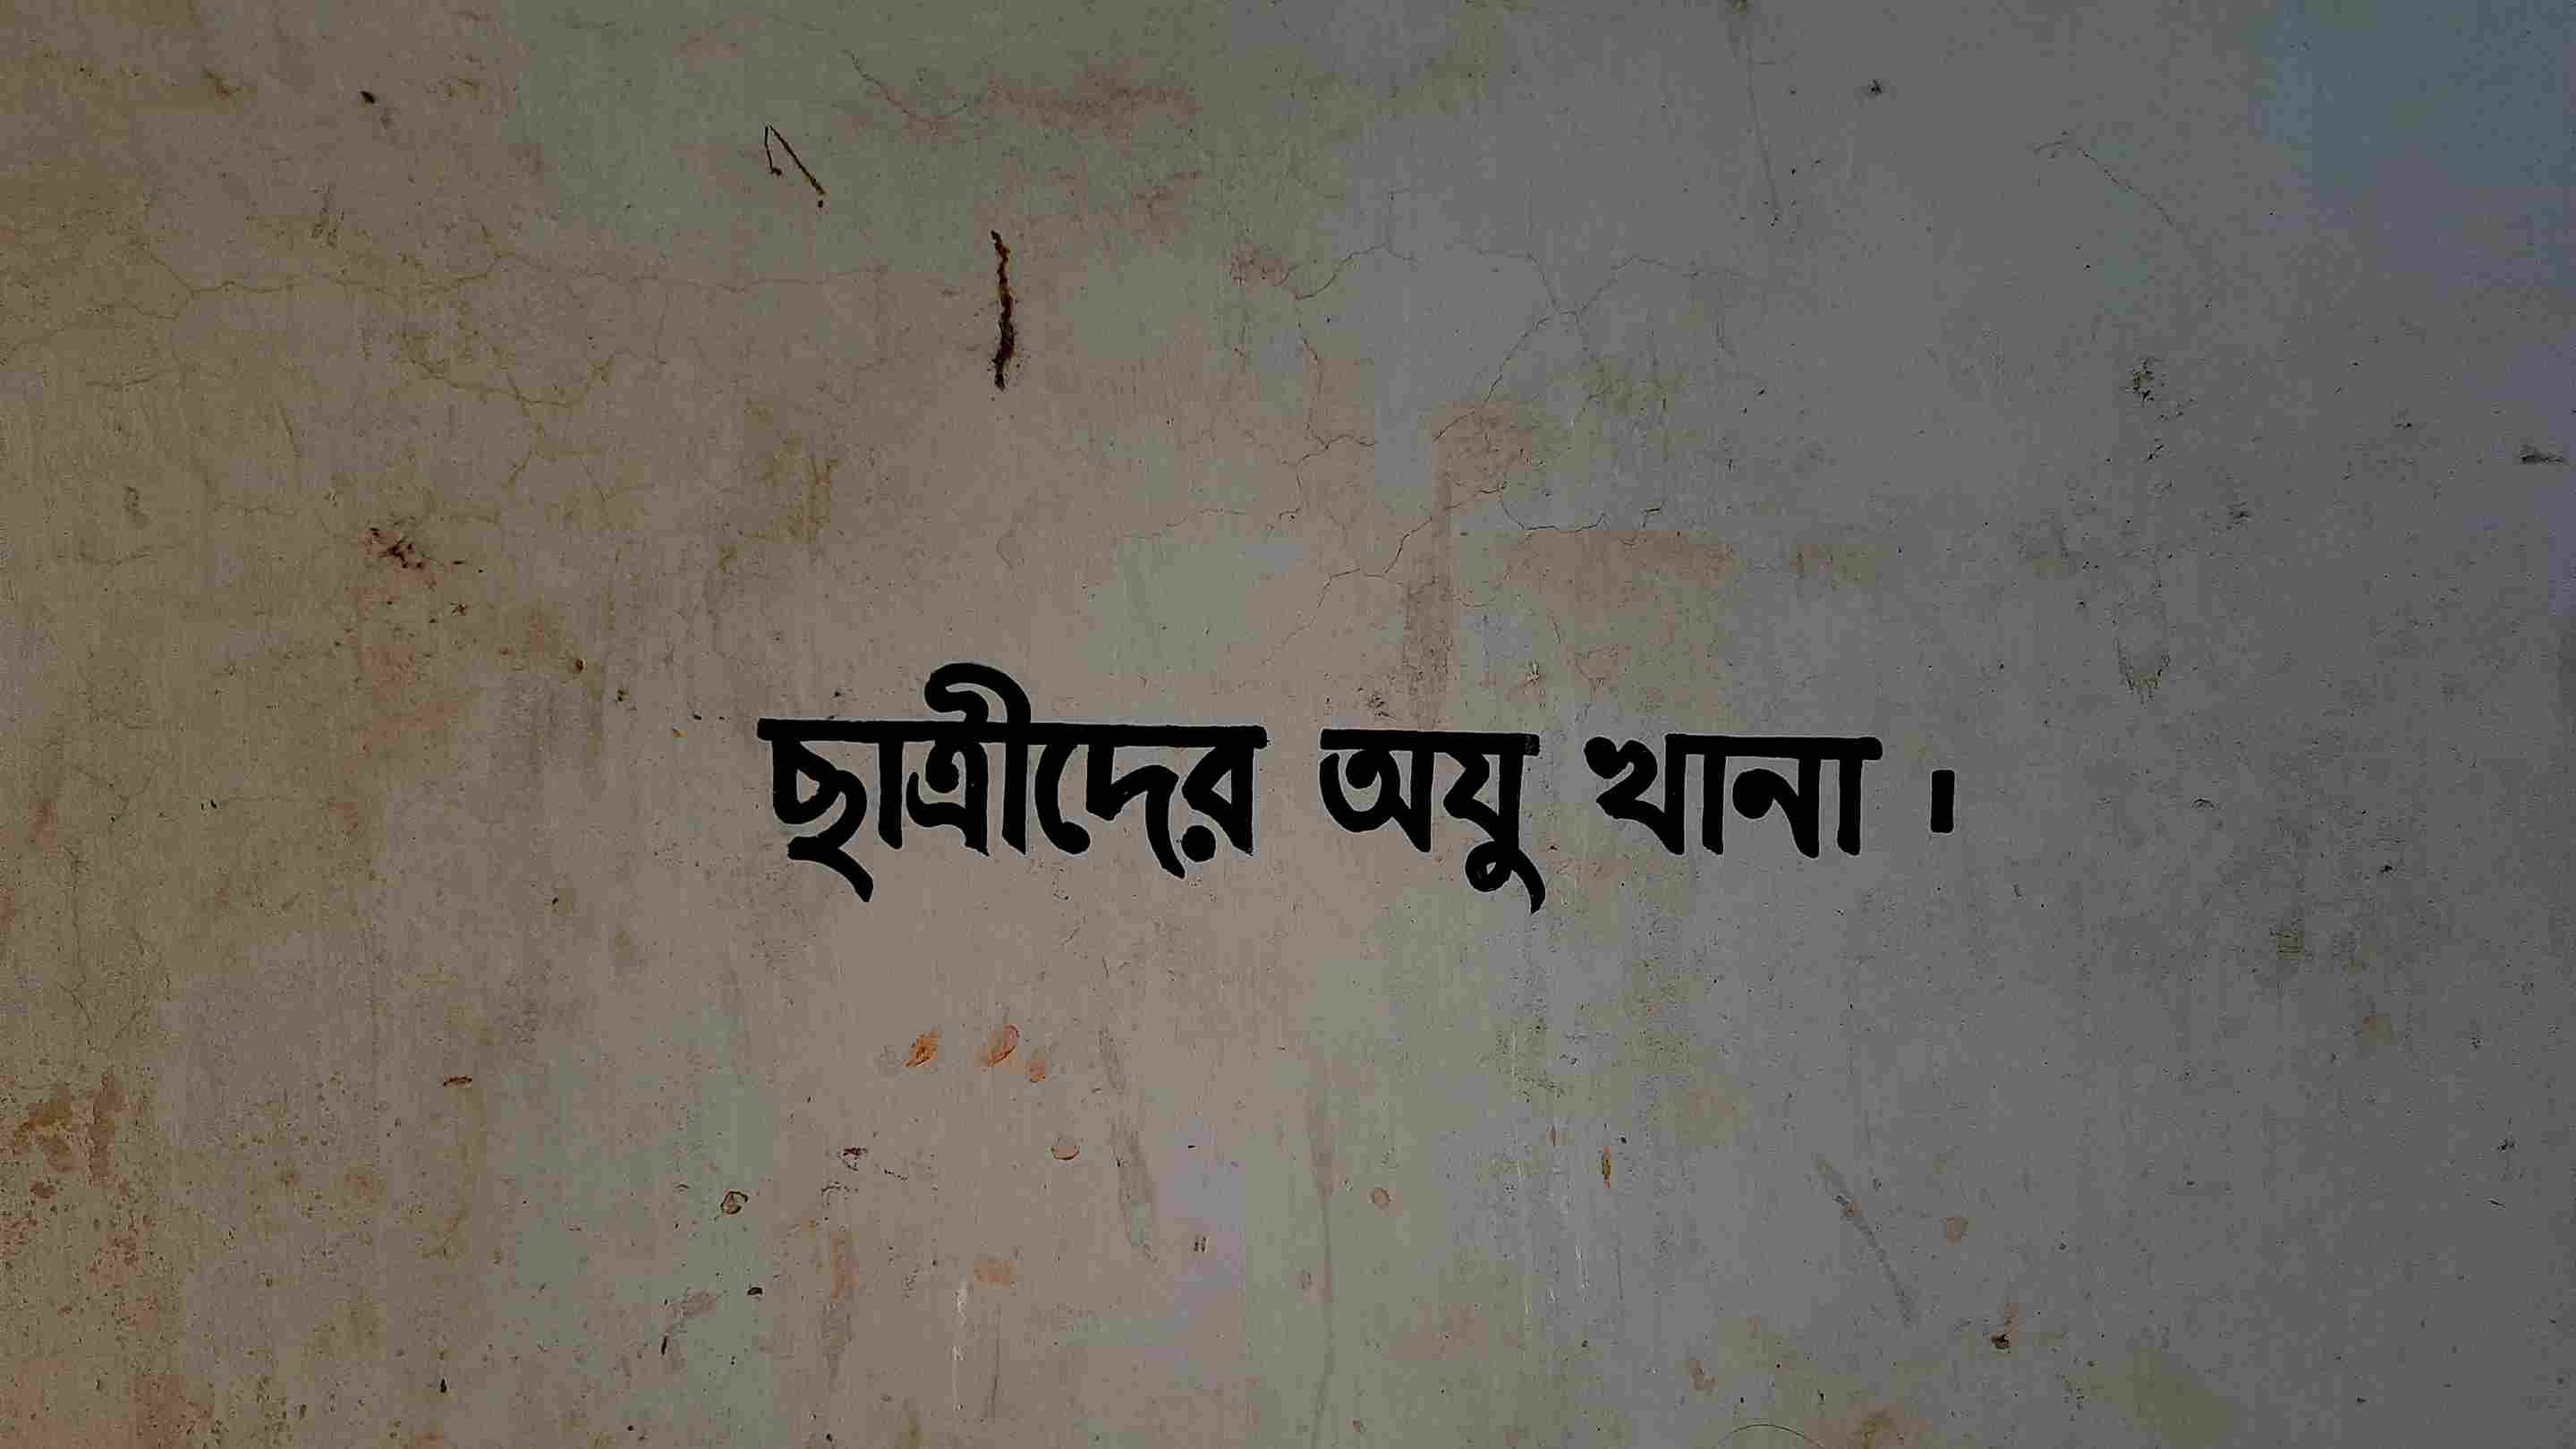 ছাত্রীদের অযু খানা ।